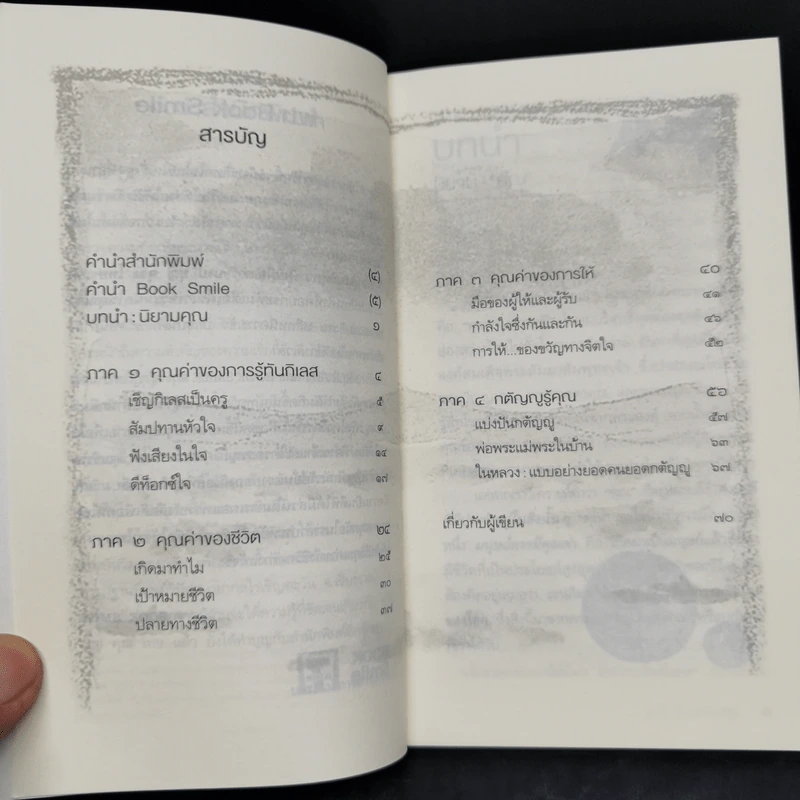 สารบัญ
คำนำสำนักพิมพ์ (๔)
คำนำ Book Smile (๕)
บทนำ : นิยามคุณ ๑
ภาค ๑ คุณค่าของการรู้ทันกิเลส ๔
เชิญกิเลสเป็นครู ๕
สัมปทานหัวใจ ๙
ฟังเสียงในใจ ๑๔
ดีท็อกซ์ใจ ๑๗
ภาค ๒ คุณค่าของชีวิต ๒๔
เกิดมาทำไม ๒๕
เป้าหมายชีวิต ๓๐
ปลายทางชีวิต ๓๗
ภาค ๓ คุณค่าของการให้ ๔๐
มือของผู้ให้และผู้รับ ๔๑
กำลังใจซึ่งกันและกัน ๔๖
การให้...ของขวัญทางจิตใจ ๕๒
ภาค ๔ กตัญญูรู้คุณ ๕๖
แบ่งปันกตัญญู ๕๗
พ่อพระแม่พระในบ้าน ๖๓
ในหลวง : แบบอย่างยอดคนยอดกตัญญู ๖๗
เกี่ยวกับผู้เขียน ๗๐